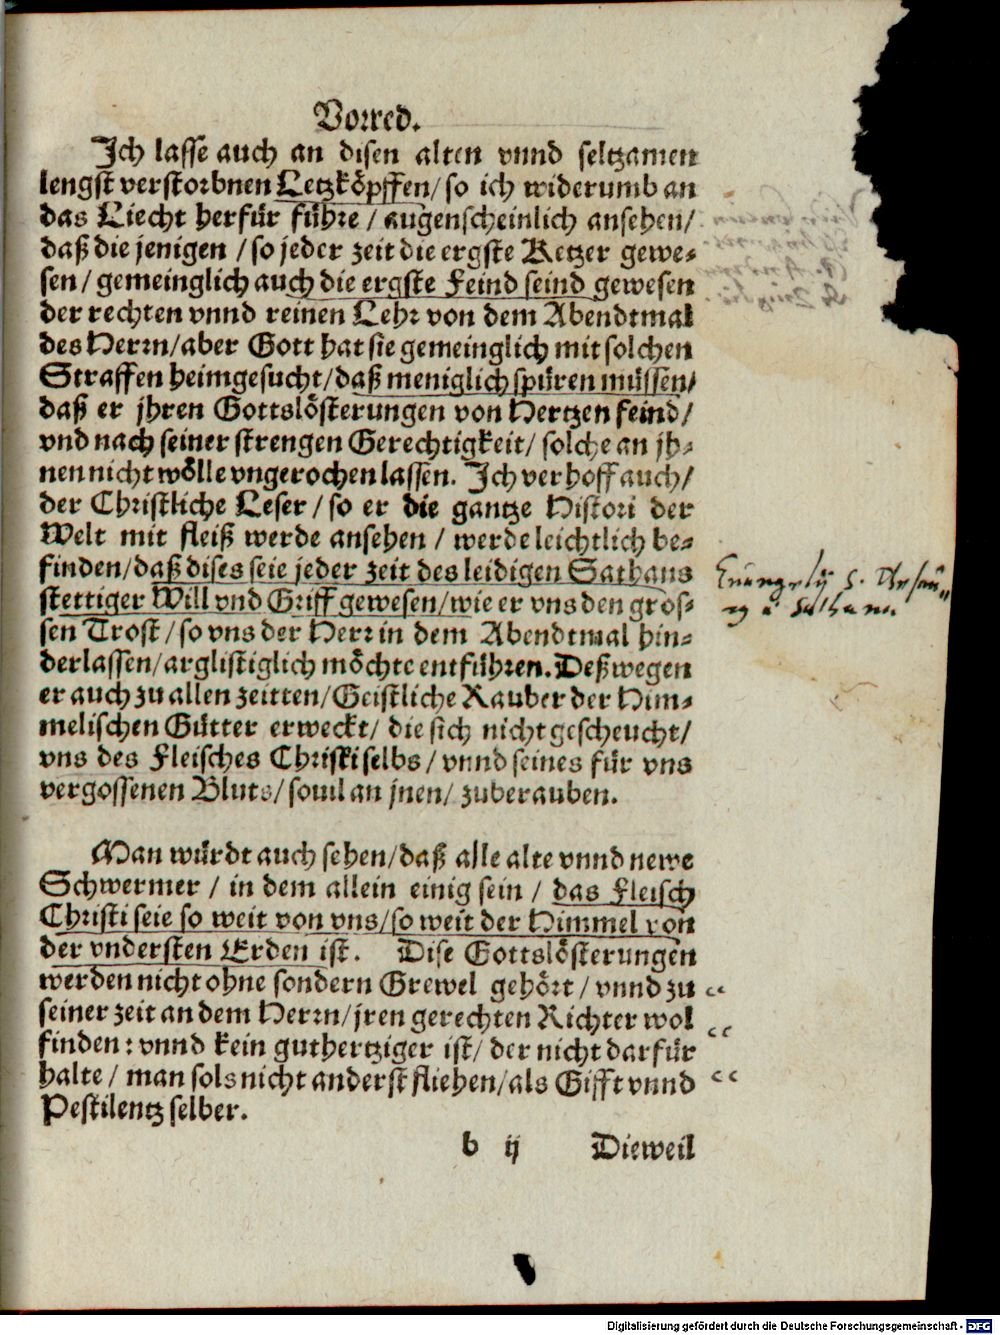 Vorred.
Ich lasse auch an disen alten vnnd seltzamen
lengst verstorbnen Letzköpffen/ so ich widerumb an
das Liecht herfür führe / augenscheinlich ansehen/
daß die jenigen / so jeder zeit die ergste Ketzer gewe-
sen/ gemeinglich auch die ergste Feind seind gewesen
der rechten vnnd reinen Lehr von dem Abendtmal
des Herrn/ aber Gott hat sie gemeinglich mit solchen
Straffen heimgesucht/ daß meniglich spüren müssen/
daß er jhren Gottslösterungen von Hertzen feind/
vnd nach seiner strengen Gerechtigkeit/ solche an jh-
nen nicht wölle vngerochen lassen. Ich verhoff auch/
der Christliche Leser / so er die gantze Histori der
Welt mit fleiß werde ansehen / werde leichtlich be-
finden/ daß dises seie jeder zeit des leidigen Sathans
stettiger Will vnd Griff gewesen/ wie er vns den gros-
sen Trost / so vns der Herr in dem Abendtmal hin-
derlassen/ arglistiglich möchte entführen. Deßwegen
er auch zu allen zeitten/ Geistliche Rauber der Him-
melischen Gütter erweckt/ die sich nicht gescheucht/
vns des Fleisches Christi selbs / vnnd seines für vns
vergossenen Bluts/ souil an jnen/ zuberauben.
Man würdt auch sehen/ daß alle alte vnnd newe
Schwermer / in dem allein einig sein / das Fleisch
Christi seie so weit von vns/ so weit der Himmel von
der vndersten Erden ist. Dise Gottslösterungen
werden nicht ohne sondern Grewel gehört / vnnd zu
seiner zeit an dem Herrn/ jren gerechten Richter wol
finden : vnnd kein guthertziger ist/ der nicht darfür
halte / man sols nicht anderst fliehen/ als Gifft vnnd
Pestilentz selber.
b ij Dieweil
Digitalisierung gefördert durch die Deutsche Forschungsgemeinschaft - DFG